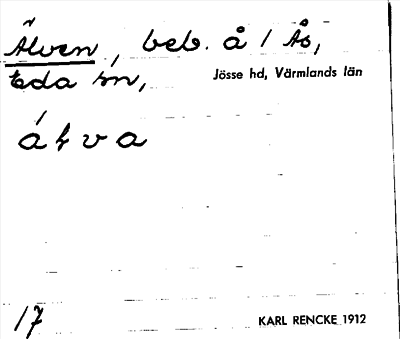 Älven, beb. å 1 Ås,
Eda sn, Jösse hd, Värmlands län
17 KARL RENCKE 1912